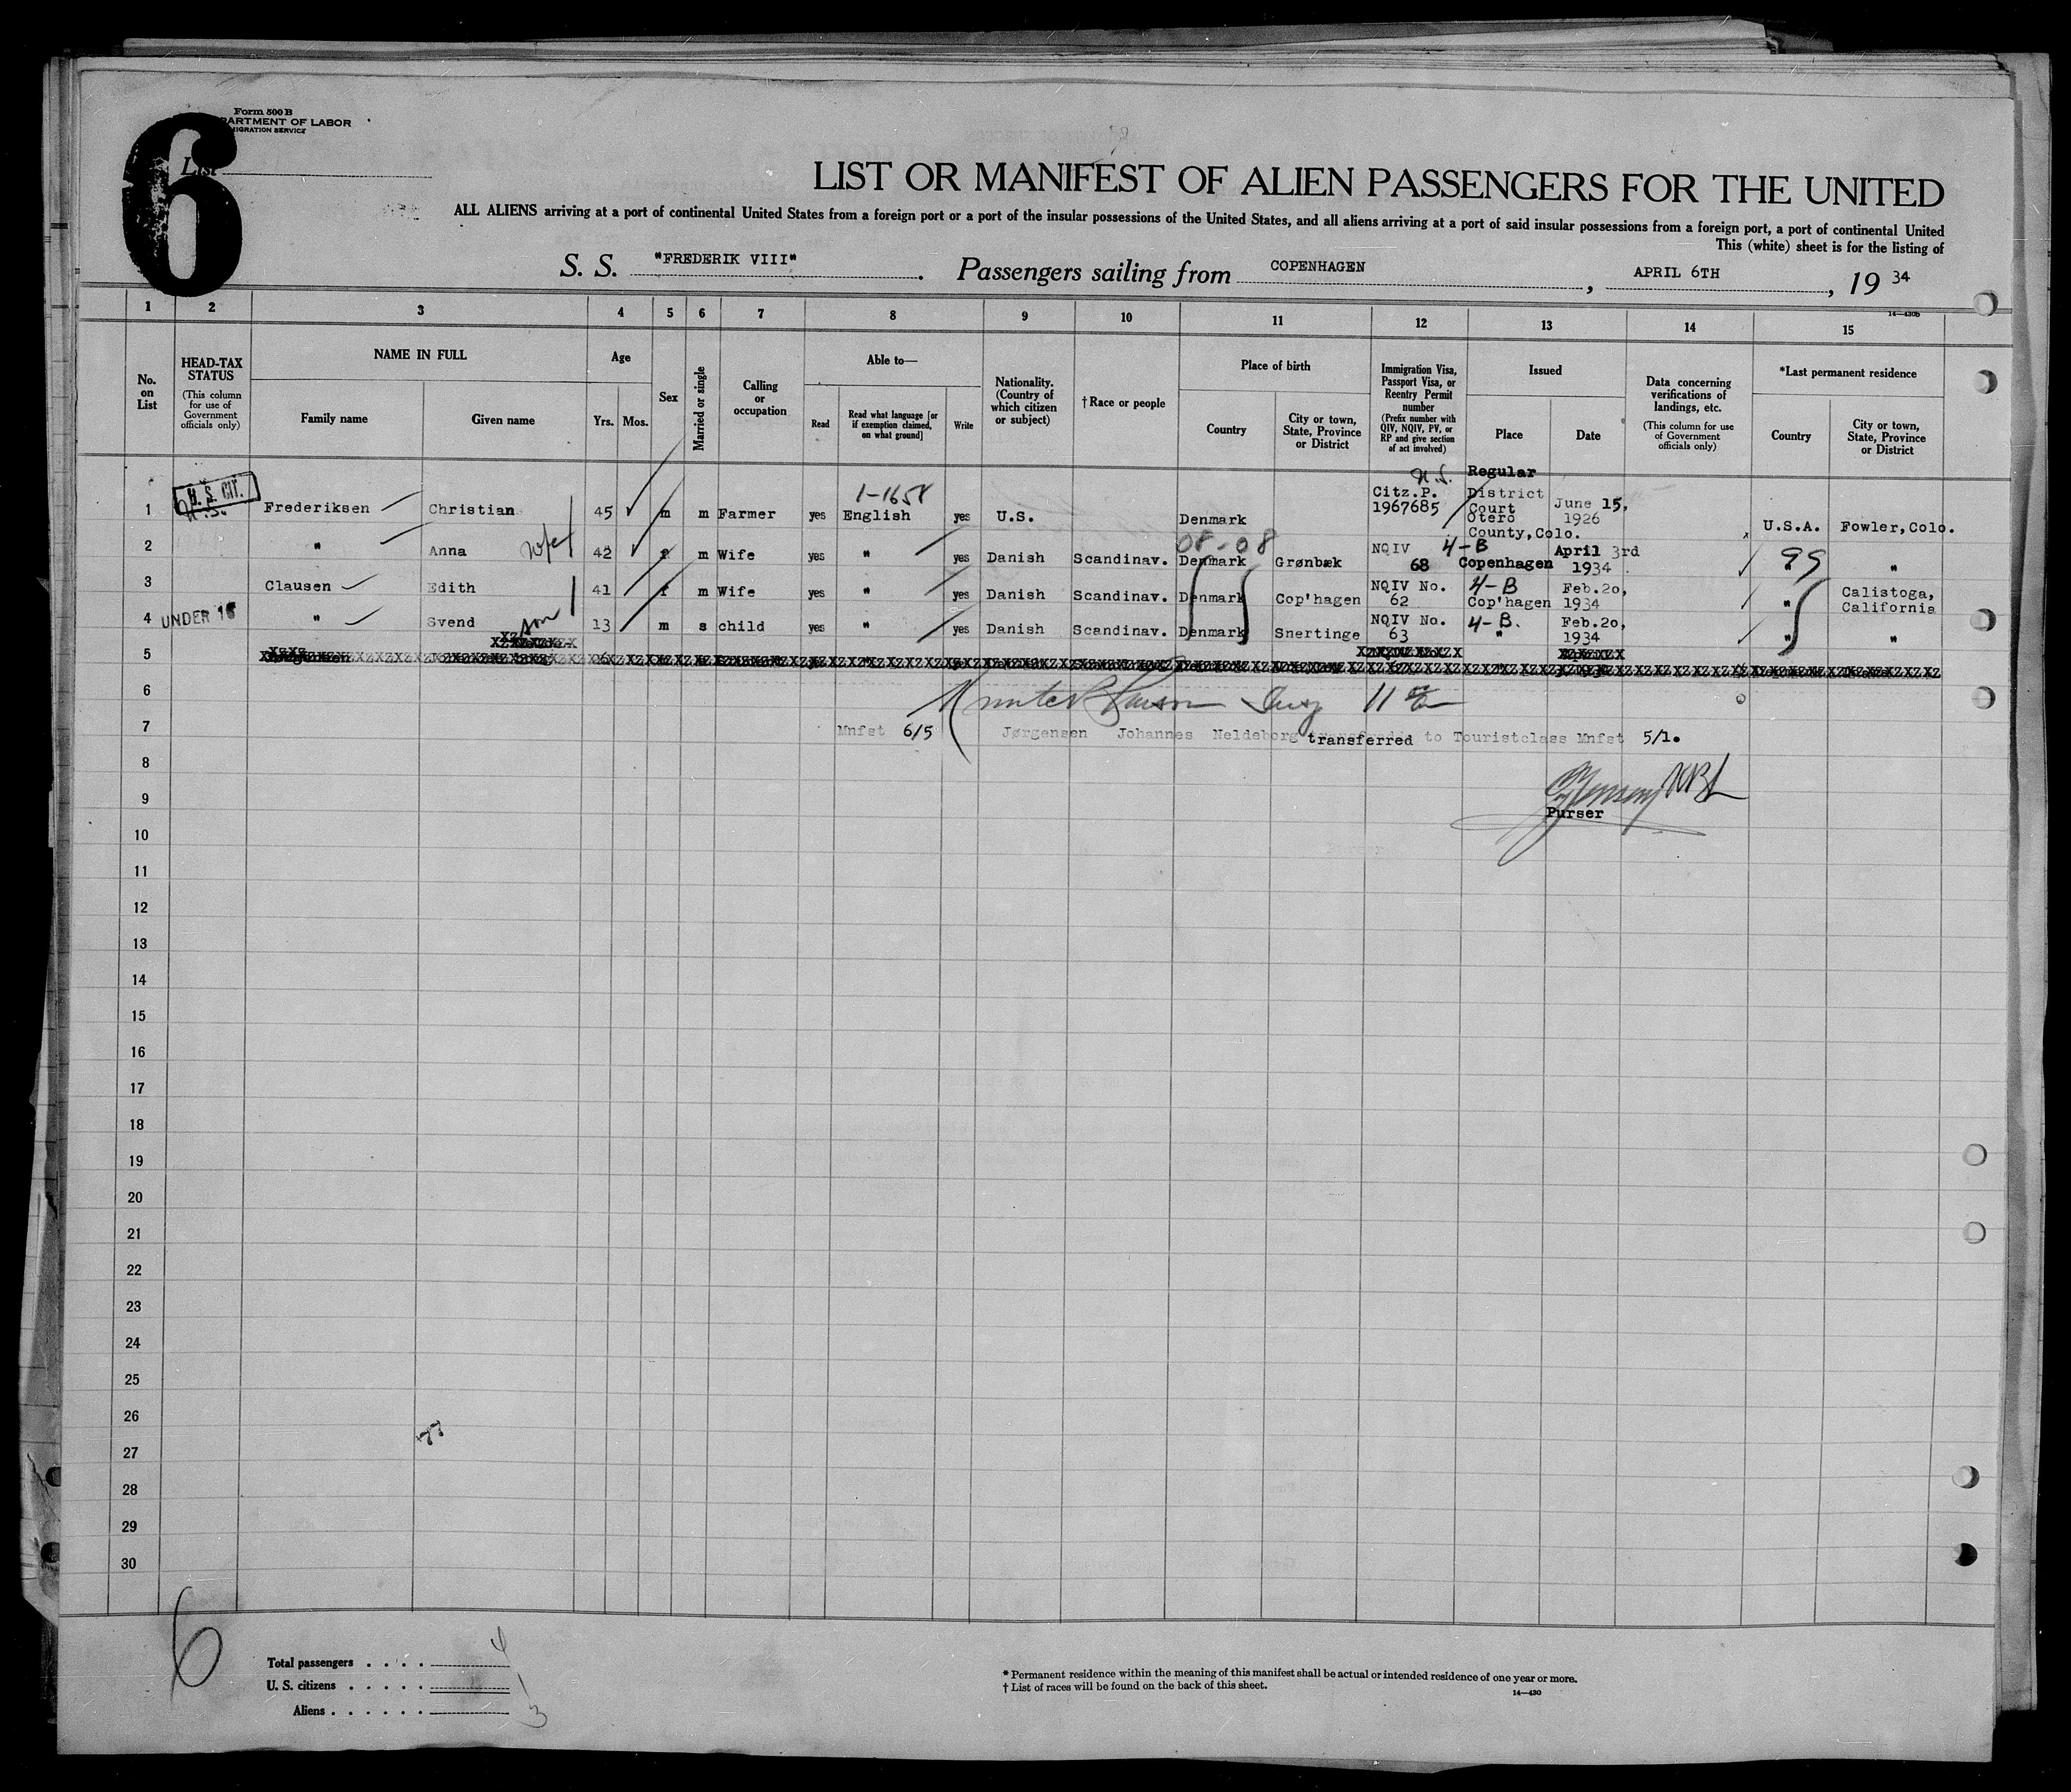 Form 500 B
ARTMENT OF LABOR
MIGRATION SERVICE
6
List
LIST OR MANIFEST OF ALIEN PASSENGERS FOR THE UNITED
ALL ALIENS arriving at a port of continental United States from a foreign port or a port of the insular possessions of the United States, and all aliens arriving at a port of said insular possessions from a foreign port, a port of continental United
This (white) sheet is for the listing of
S. S. "FREDERIK VIII". Passengers sailing from COPENHAGEN, APRIL 6TH, 19 34
1 2 3 4 5 6 7 8 9 10 11 12 13 14 15
14—430b
No. on List
HEAD-TAX STATUS (This column for use of Government officials only)
NAME IN FULL
Family name
Given name
Age
Yrs. Mos.
Sex
Married or single
Calling or occupation
Able to—
Read
Read what language [or if exemption claimed, on what ground]
Write
Nationality. (Country of which citizen or subject)
†Race or people
Place of birth
Country
City or town, State, Province or District
Immigration Visa, Passport Visa, or Reentry Permit number (Prefix number with QIV, NQIV, PV, or RP and give section of act involved)
Issued
Place
Date
Data concerning verifications of landings, etc. (This column for use of Government officials only)
*Last permanent residence
Country
City or town, State, Province or District
1 U. S. CIT. Frederiksen Christian 45 m m Farmer yes 1-1658 English yes U.S. Denmark Citz.P. 1967685 Regular District Court Otero County, Colo. June 15, 1926 U.S.A. Fowler, Colo.
2 " Anna wife 42 f m Wife yes " yes Danish Scandinav. 08-08 Denmark Grønbæk NQIV 68 4-B Copenhagen April 3rd 1934 99 " "
3 Clausen Edith 41 f m Wife yes " yes Danish Scandinav. Denmark Cop'hagen NQIV No. 62 4-B Cop'hagen Feb.20, 1934 " Calistoga, California
4 UNDER 16 " Svend son 13 m s child yes " yes Danish Scandinav. Denmark Snertinge NQIV No. 63 4-B. " Feb.20, 1934 " "
5
6
7 Mnfst 6/5 Jørgensen Johannes Neldeborg transferred to Touristclass Mnfst 5/1.
8
9
Purser
10
11
12
13
14
15
16
17
18
19
20
21
22
23
24
25
26
27
28
29
30
6
Total passengers . . . . 4
U. S. citizens . . . . . 1
Aliens . . . . . . 3
* Permanent residence within the meaning of this manifest shall be actual or intended residence of one year or more.
† List of races will be found on the back of this sheet.
14—430